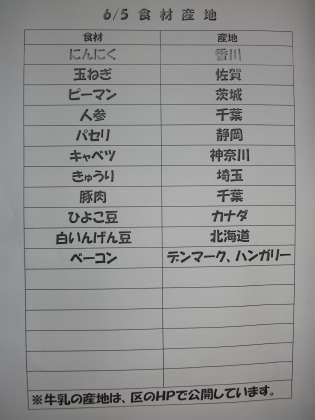 6/5 食材産地
食材 産地
にんにく 香川
玉ねぎ 佐賀
ピーマン 茨城
人参 千葉
パセリ 静岡
キャベツ 神奈川
きゅうり 埼玉
豚肉 千葉
ひよこ豆 カナダ
白いんげん豆 北海道
ベーコン デンマーク、ハンガリー
※牛乳の産地は、区のHPで公開しています。